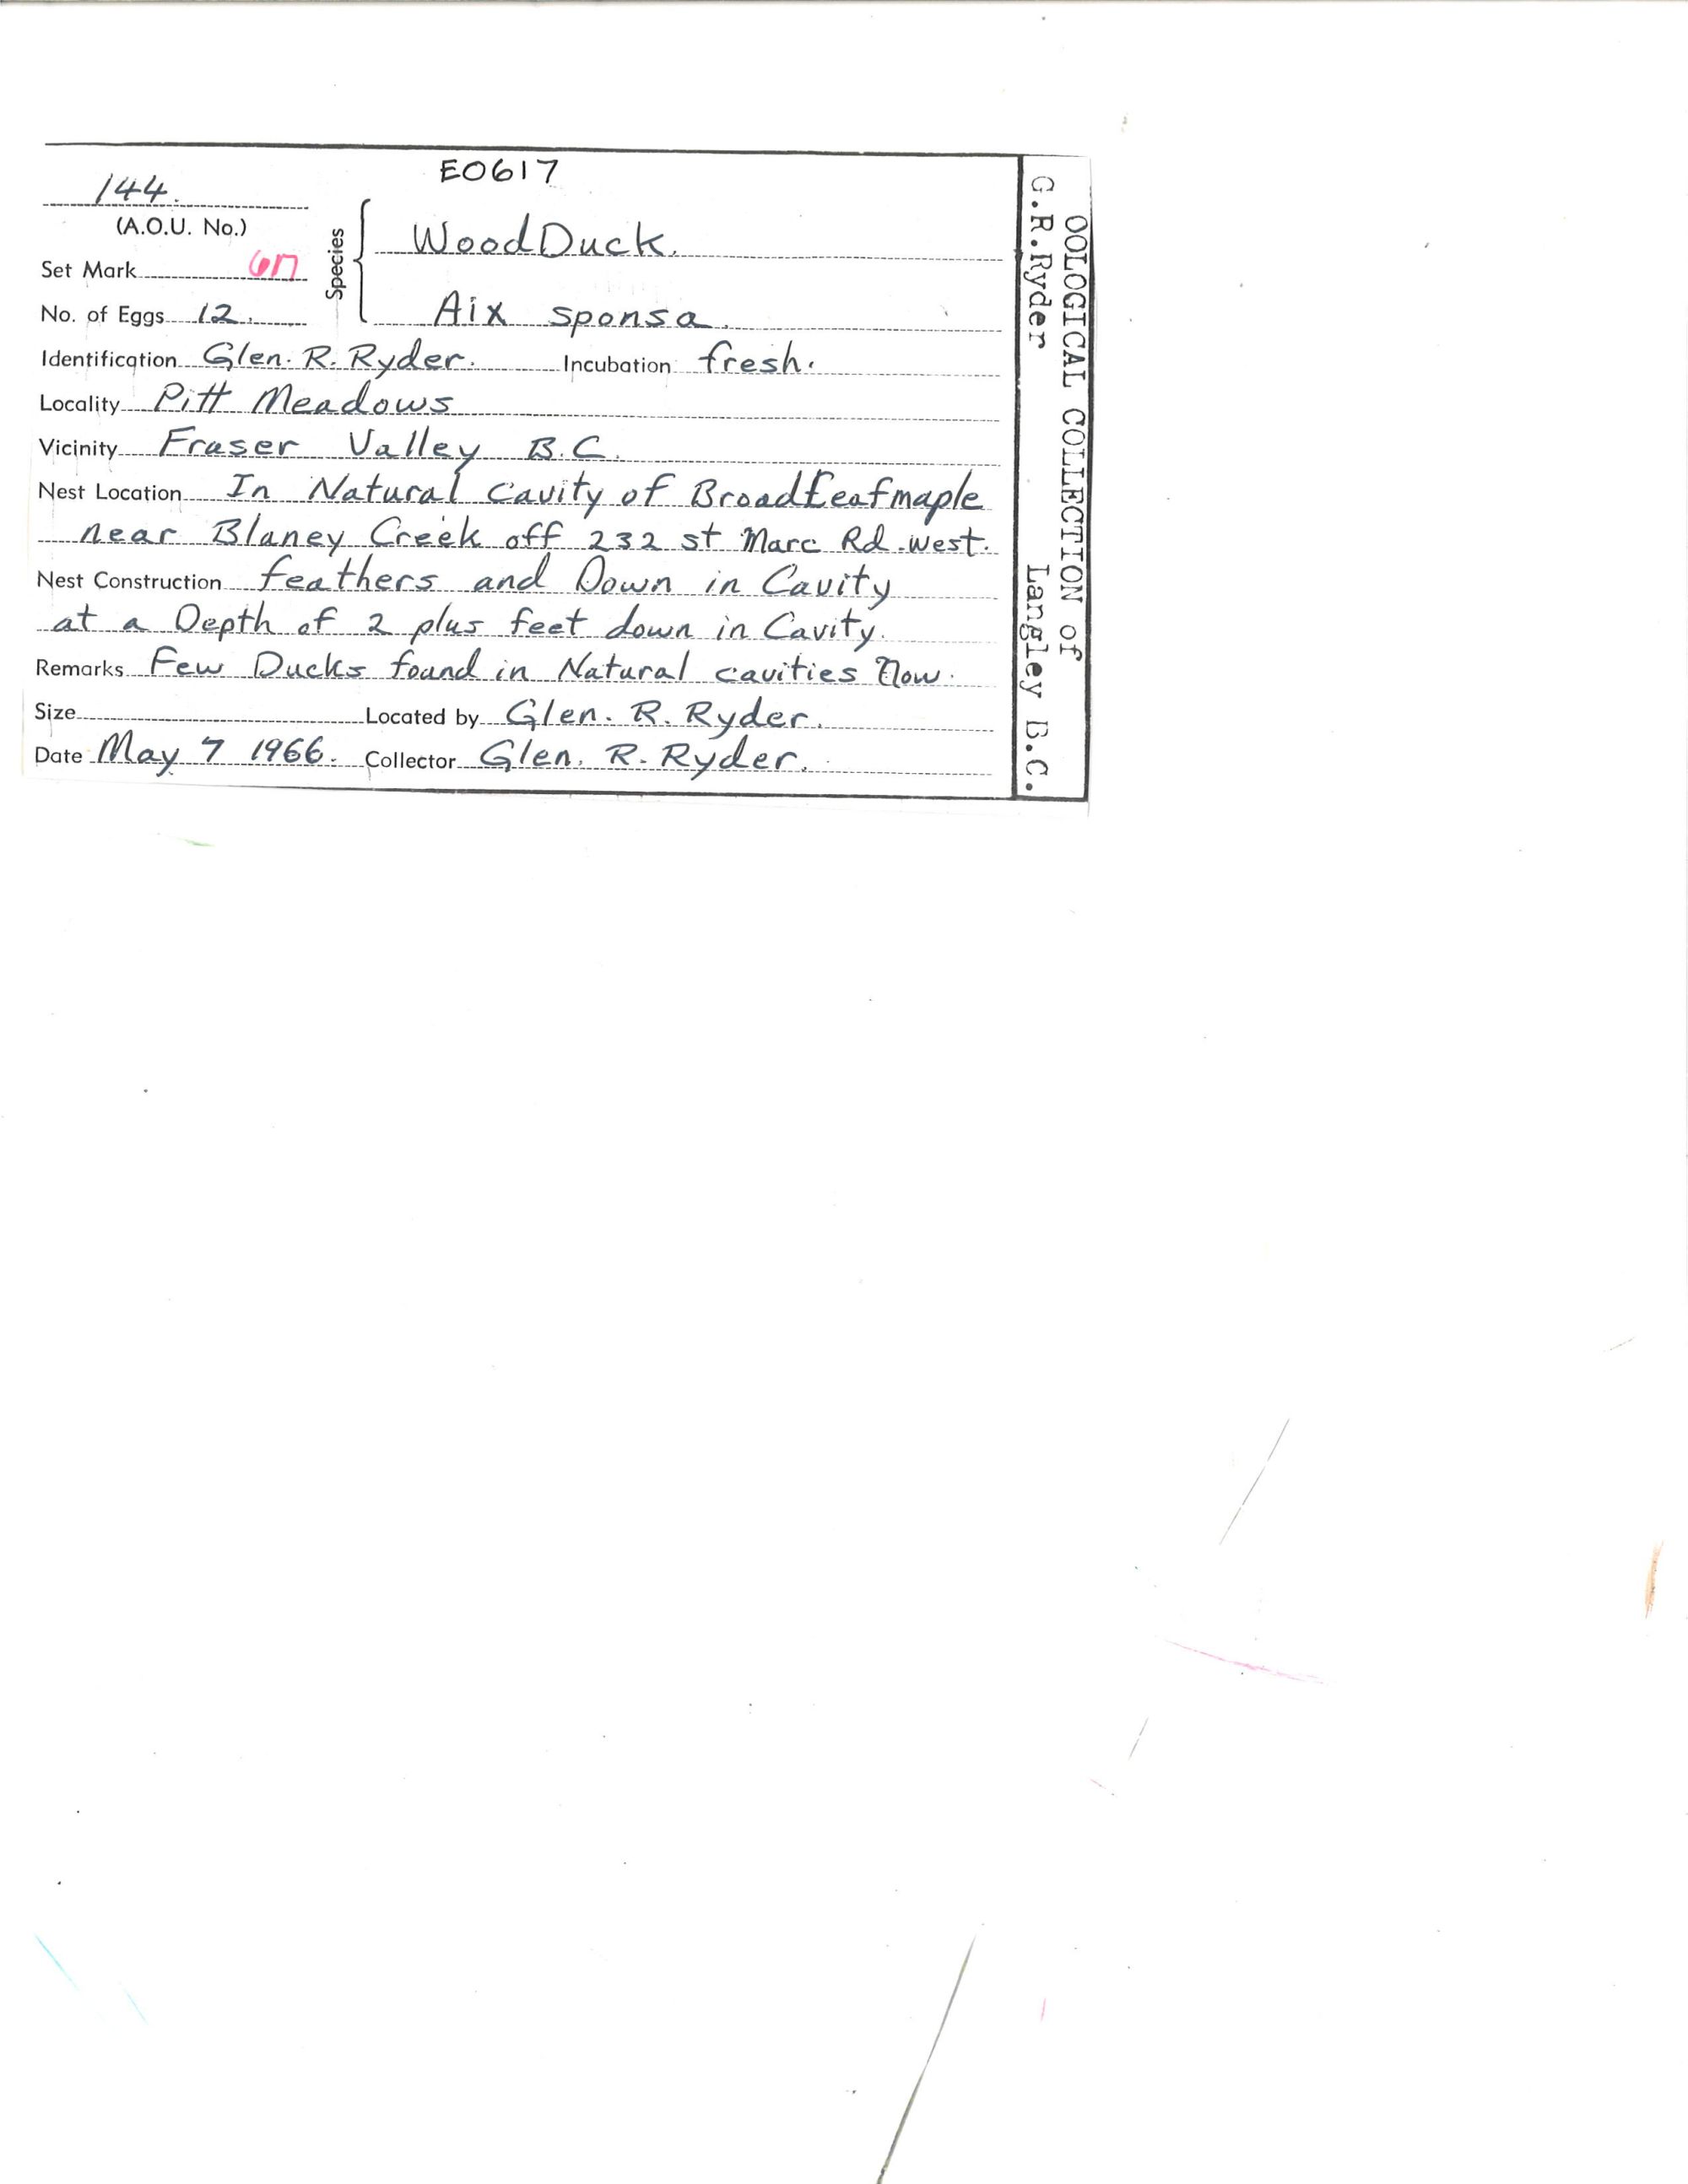 E0617
144.
(A.O.U. No.)
Species
Wood Duck.
Set Mark
No. of Eggs 12.
Aix sponsa.
Identification Glen. R. Ryder. Incubation fresh.
Locality Pitt Meadows
Vicinity Fraser Valley B.C.
Nest Location In Natural cavity of Broadleafmaple
near Blaney Creek off 232 st Marc Rd. west.
Nest Construction feathers and Down in Cavity
at a Depth of 2 plus feet down in Cavity.
Remarks Few Ducks found in Natural cavities Now.
Size Located by Glen. R. Ryder.
Date May 7 1966. Collector Glen. R. Ryder.
OOLOGICAL COLLECTION of
G.R.Ryder Langley B.C.